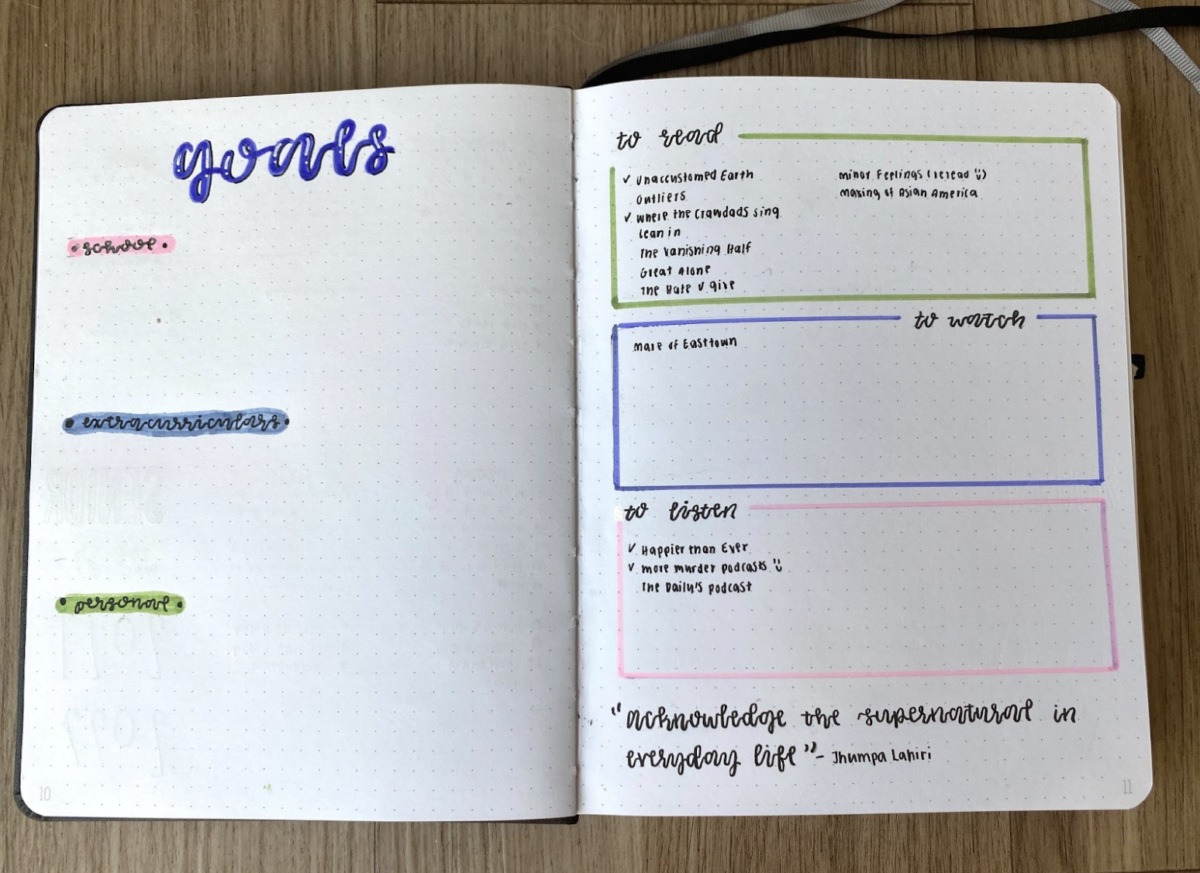 goals
• school •
• extracurriculars •
• personal •
10
to read
✓ Unaccustomed Earth
Outliers
✓ Where the Crawdads Sing
Lean in
The Vanishing Half
Great Alone
The Hate U give
Minor Feelings (reread ü)
Making of Asian America
to watch
Mare of Easttown
to listen
✓ Happier than Ever
✓ more murder podcasts ü
The Daily's podcast
"acknowledge the supernatural in
everyday life" - Jhumpa Lahiri
11